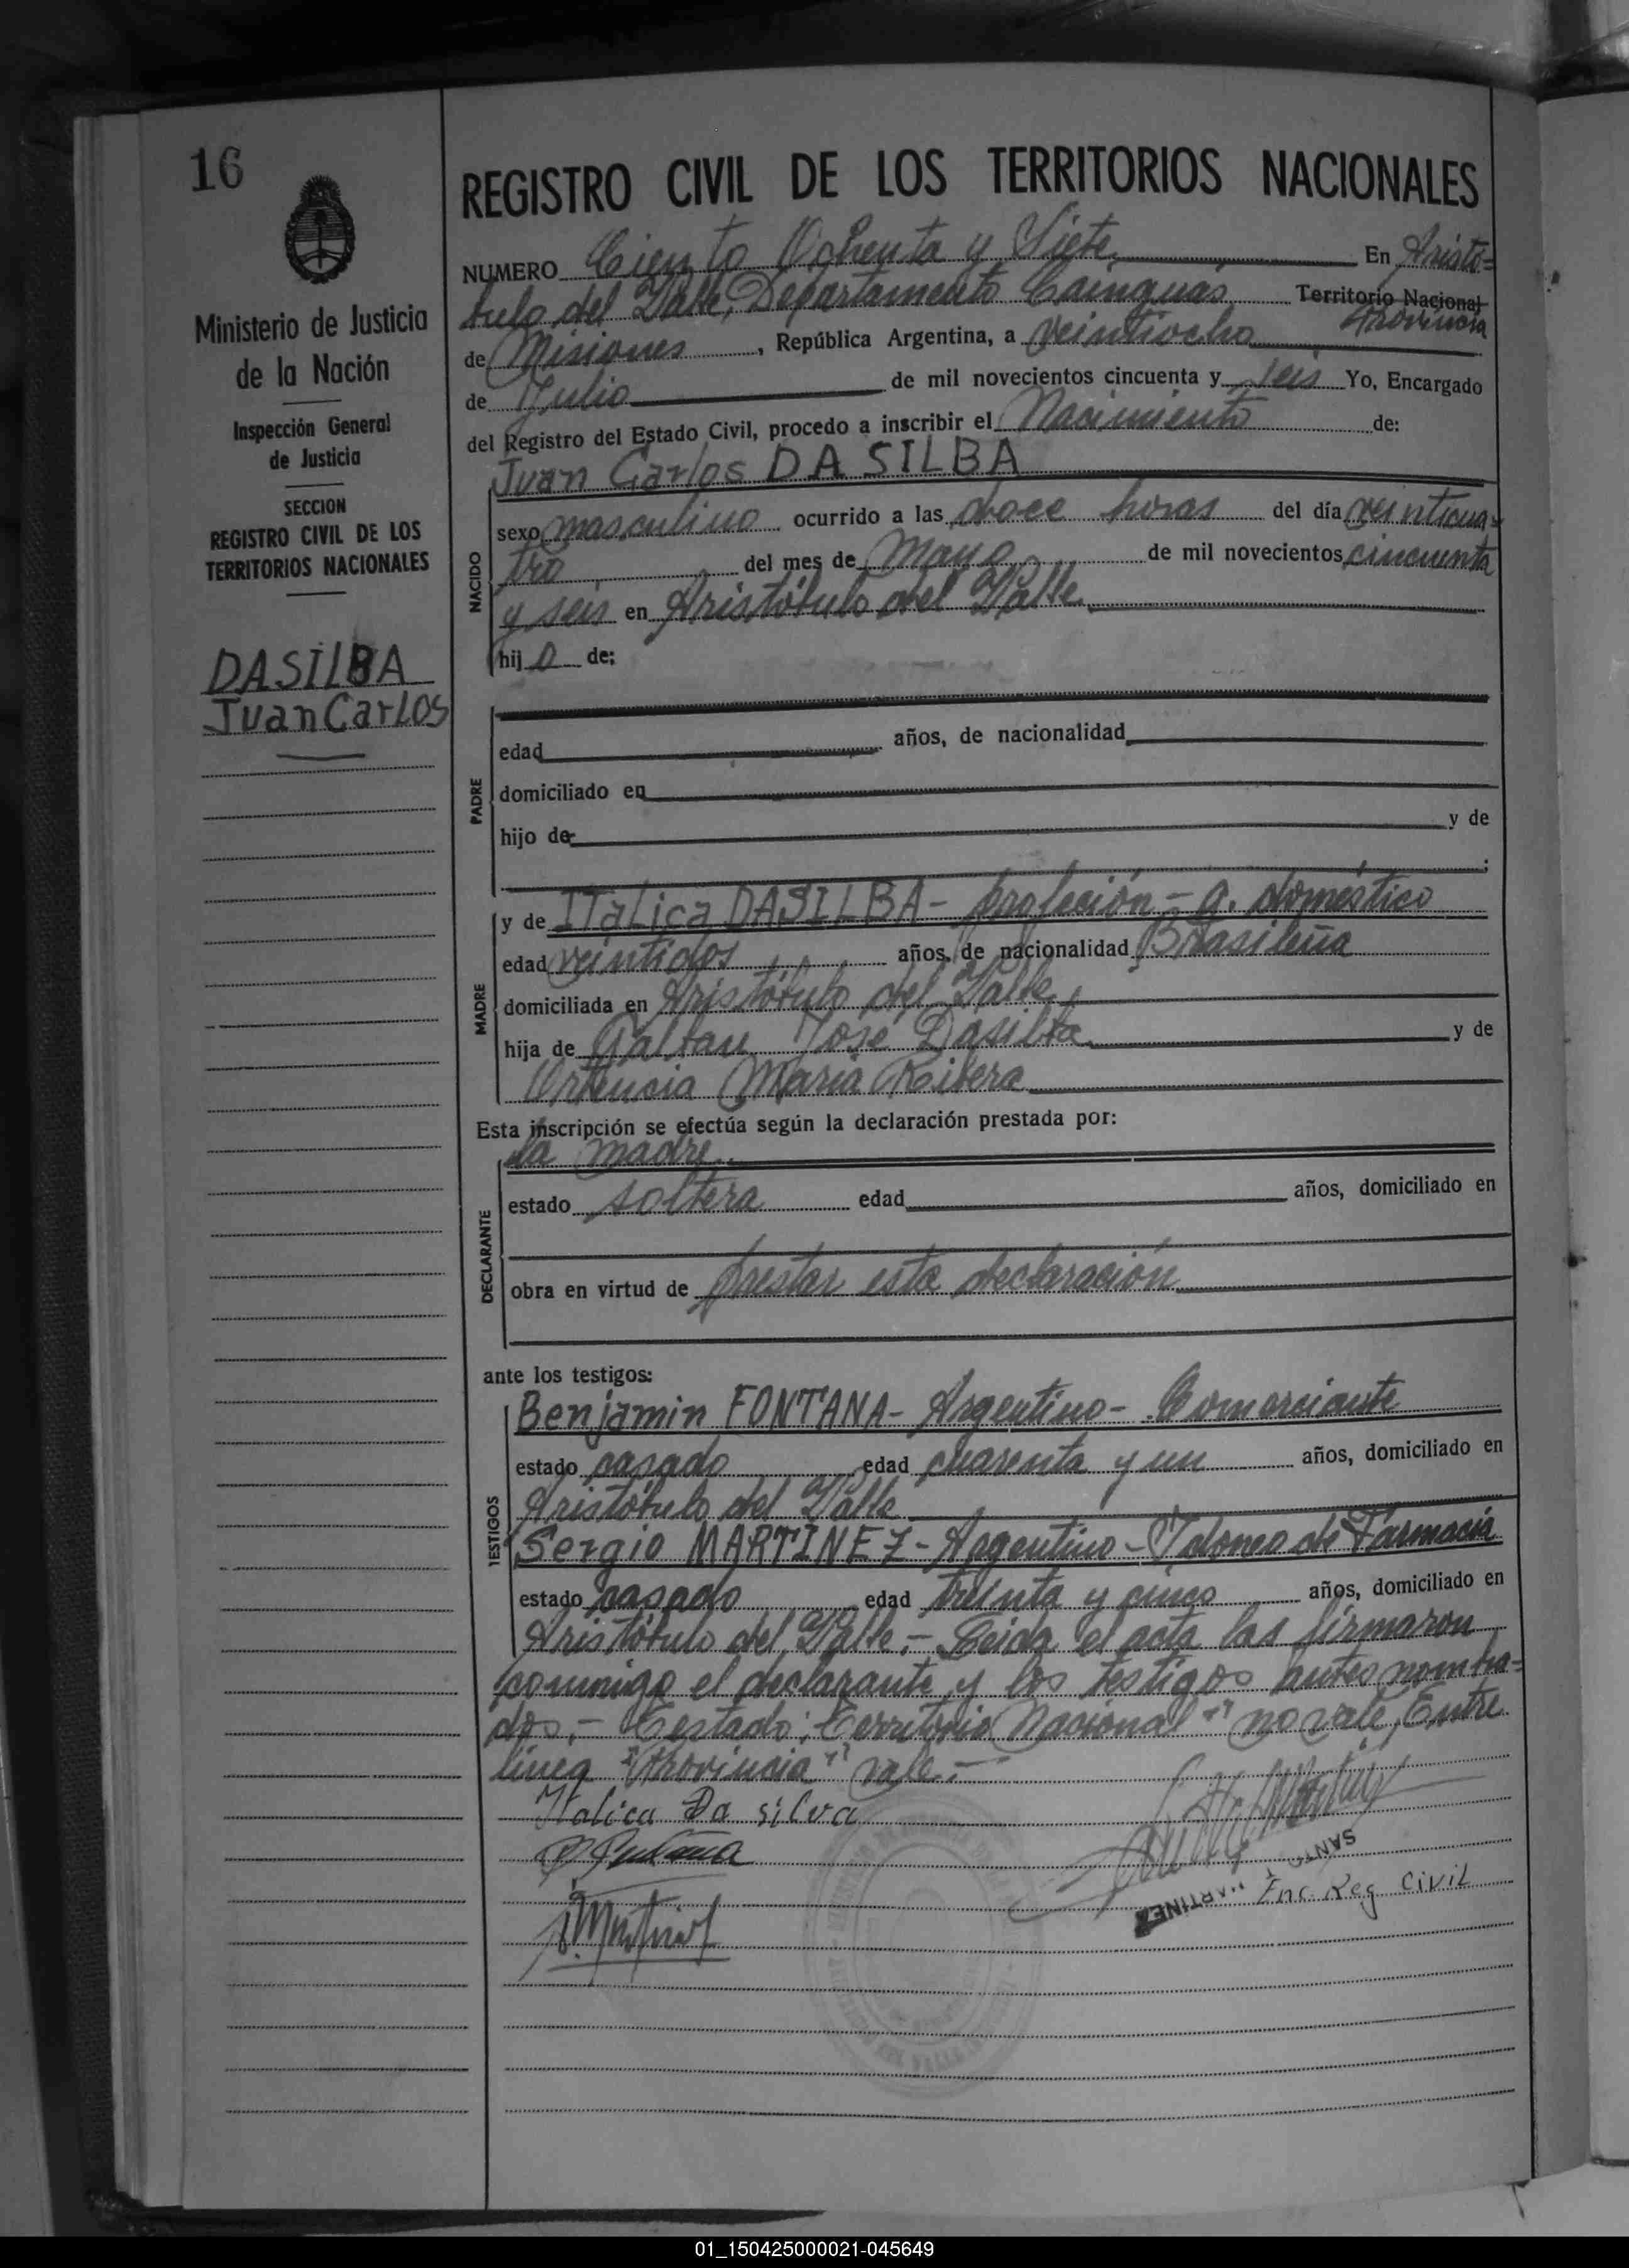 16
Ministerio de Justicia
de la Nación
Inspección General
de Justicia
SECCION
REGISTRO CIVIL DE LOS
TERRITORIOS NACIONALES
DASILBA
Juan Carlos
REGISTRO CIVIL DE LOS TERRITORIOS NACIONALES
NUMERO Ciento Ochenta y Siete En Aristó-
bulo del Valle, Departamento Cainguás, Territorio Nacional
Provincia
de Misiones, República Argentina, a veintiocho
de Julio de mil novecientos cincuenta y seis Yo, Encargado
del Registro del Estado Civil, procedo a inscribir el Nacimiento de:
Juan Carlos DASILBA
NACIDO
sexo masculino ocurrido a las doce horas del día veinticua-
tro del mes de Mayo de mil novecientos cincuenta
y seis en Aristóbulo del Valle
hijo de:
PADRE
edad años, de nacionalidad
domiciliado en
hijo de y de
;
MADRE
y de Italica DASILBA - profeción - q. doméstico
edad veintidos años, de nacionalidad Brasileña
domiciliada en Aristóbulo del Valle
hija de José Dasilba y de
Ortencia María Ribera
Esta inscripción se efectúa según la declaración prestada por:
la madre
DECLARANTE
estado soltera edad años, domiciliado en
obra en virtud de prestar esta declaración
ante los testigos:
TESTIGOS
Benjamin FONTANA - Argentino - Comerciante
estado casado edad cuarenta y un años, domiciliado en
Aristóbulo del Valle
Sergio MARTINEZ - Argentino - Idoneo de Farmacia
estado casado edad treinta y cinco años, domiciliado en
Aristóbulo del Valle.- Leida el acta las firmaron
conmigo el declarante y los testigos antes nombra-
dos.- Testado: "Territorio Nacional" no vale, Entre
linea "Provincia" vale.-
Italica Da silva
B Fontana
S. Martinez
SANTO MARTINEZ
Enc Reg Civil
01_150425000021-045649